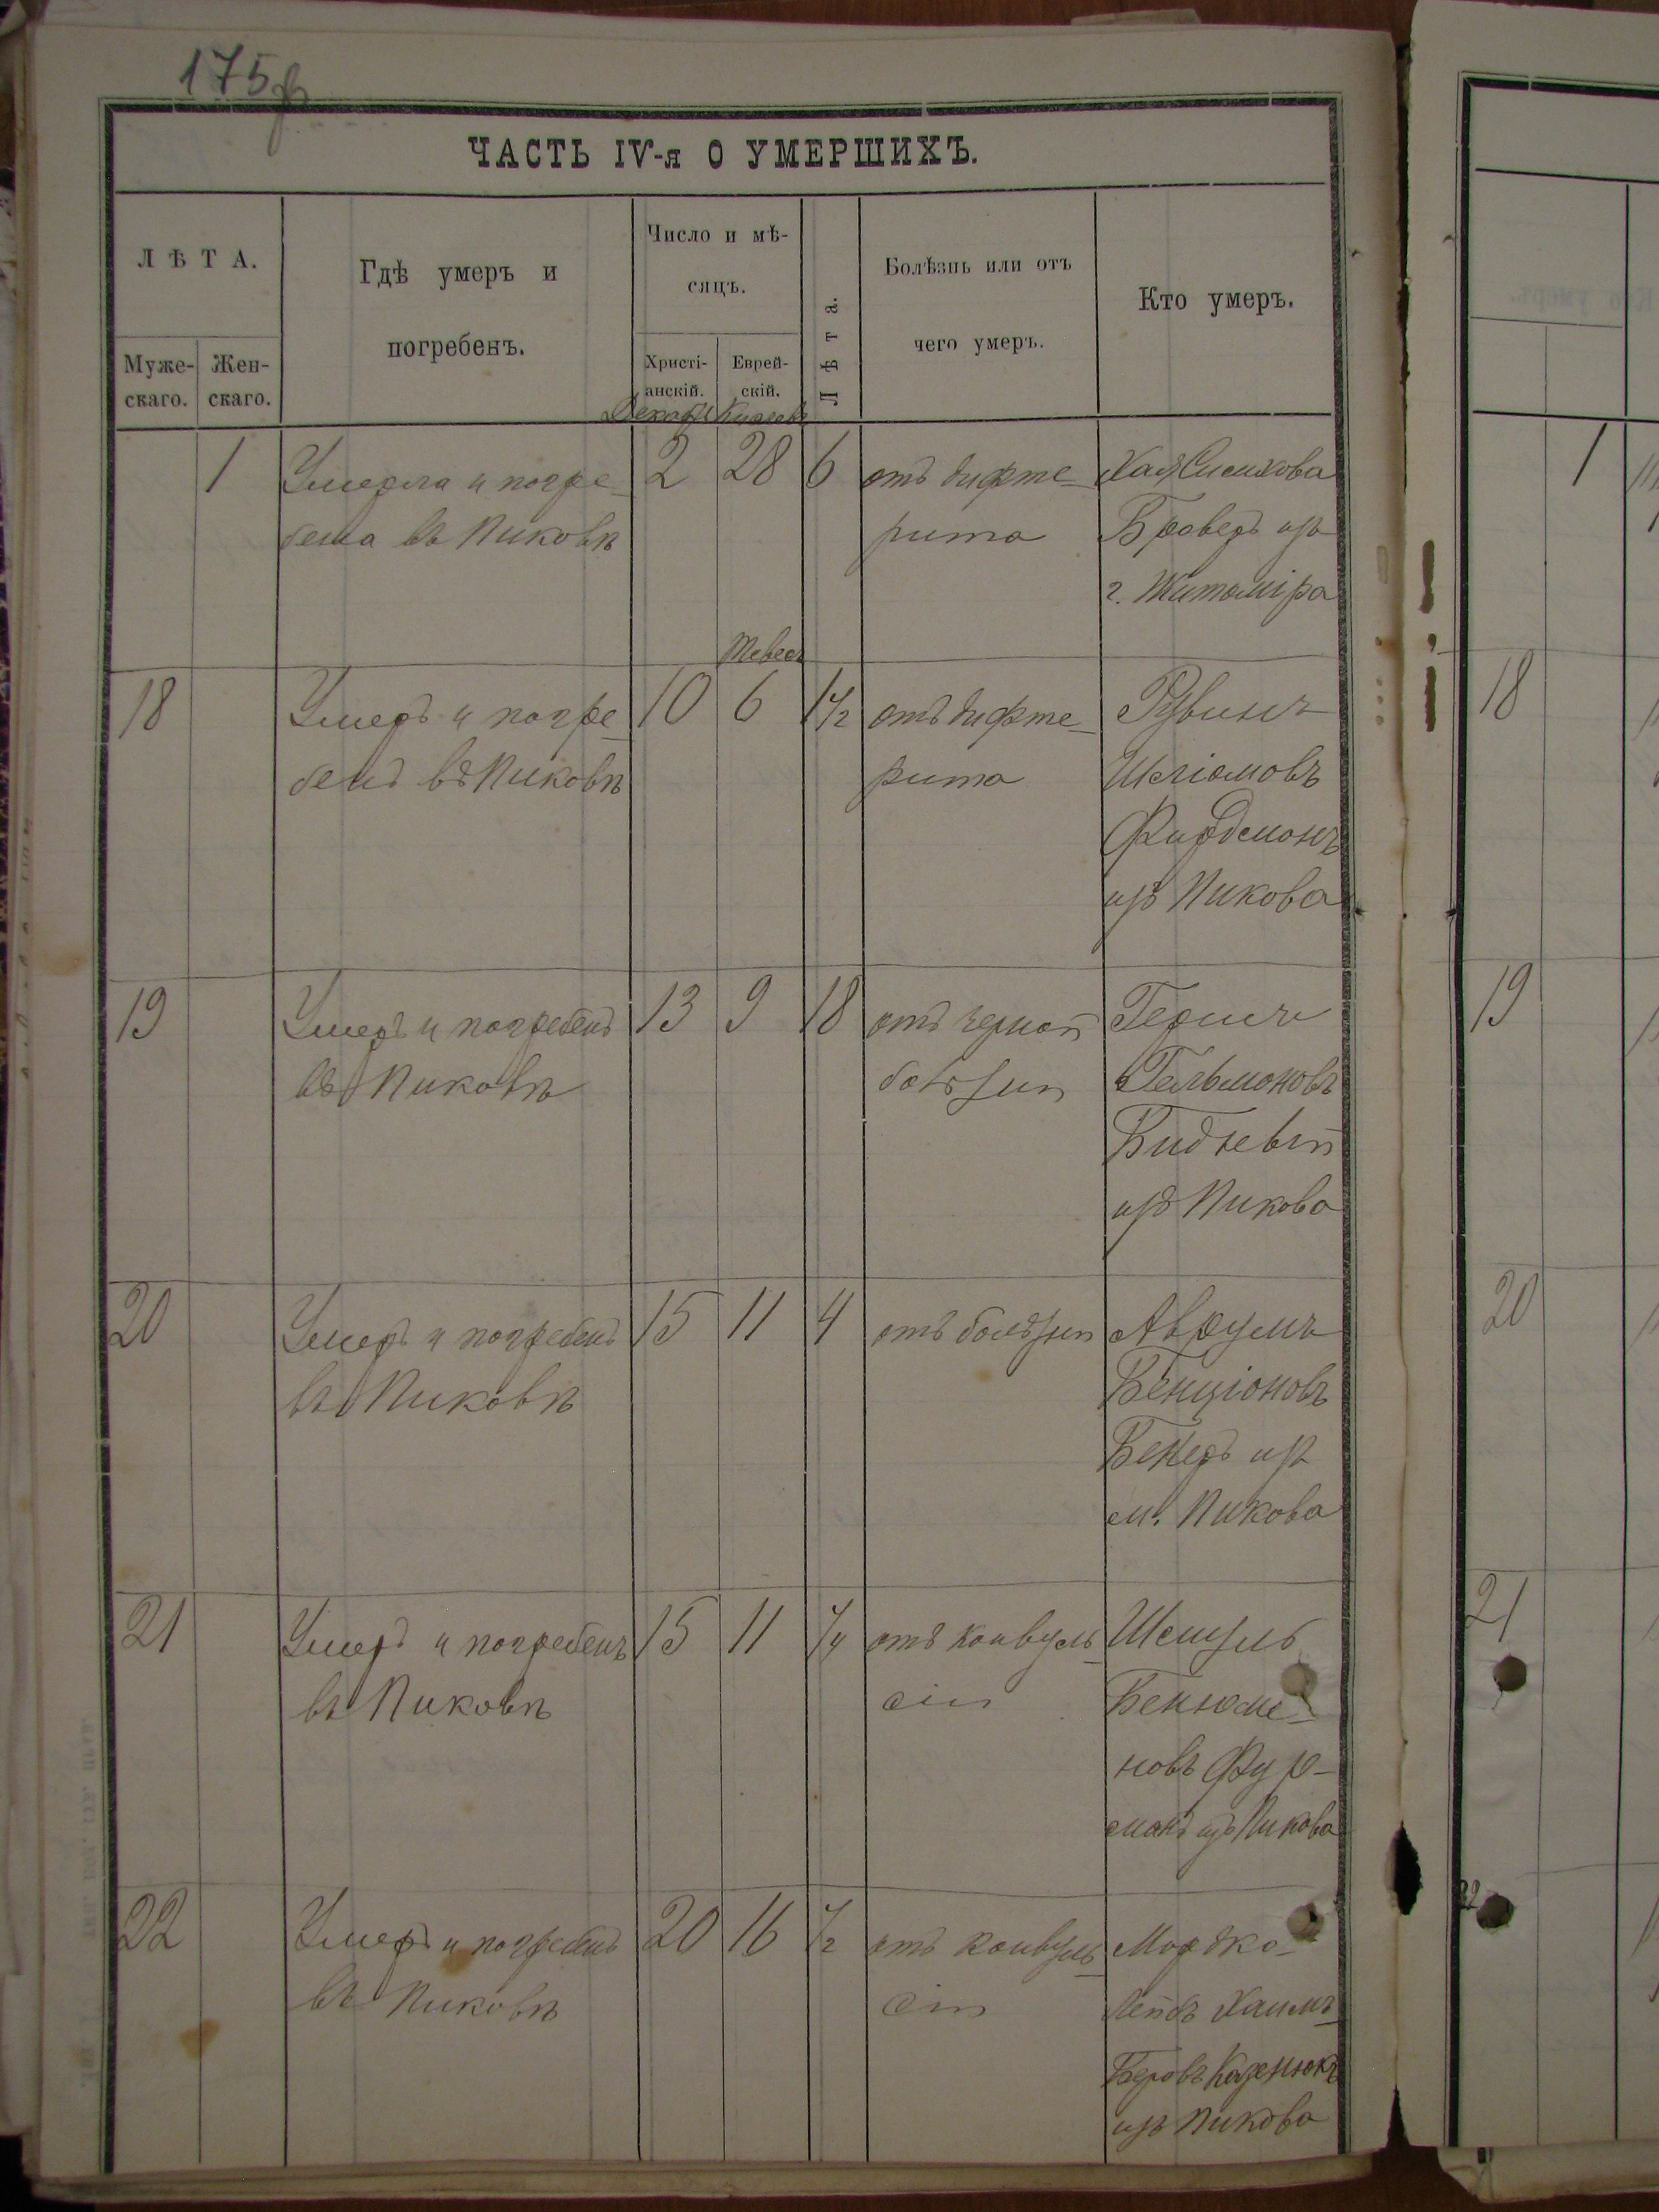 175
ЧАСТЬ IV-я О УМЕРШИХЪ.
ЛѢТА.
Муже-
скаго.
Жен-
скаго.
Гдѣ умеръ и
погребенъ.
Число и мѣ-
сяцъ.
Христі-
анскій.
Еврей-
скій.
Лѣта.
Болѣзнь или отъ
чего умеръ.
Кто умеръ.
1
Умерла и погре-
бена въ Пиковѣ
2
28
6
отъ дифте-
рита
Хая
Броверъ изъ
г. Житоміра
Тевесъ
18
Умеръ и погре-
бенъ въ Пиковѣ
10
6
1 1/2
отъ дифте-
рита
Рувинъ
Шліомовъ
изъ Пикова
19
Умеръ и погребенъ
въ Пиковѣ
13
9
18
отъ черной
Гершъ
Гельмановъ
изъ Пикова
20
Умеръ и погребенъ
въ Пиковѣ
15
11
4
отъ болѣзни
Аврумъ
Бенціоновъ
Бекеръ изъ
м. Пикова
21
Умеръ и погребенъ
въ Пиковѣ
15
11
1/4
отъ конвуль-
сіи
Шмуль
Бенюме-
новъ Фур-
манъ изъ Пикова
22
Умеръ и погребенъ
въ Пиковѣ
20
16
1/2
отъ конвуль-
сіи
Мордко-
Лейбъ Хаимъ-
Беровъ
изъ Пикова
1
18
19
20
21
22